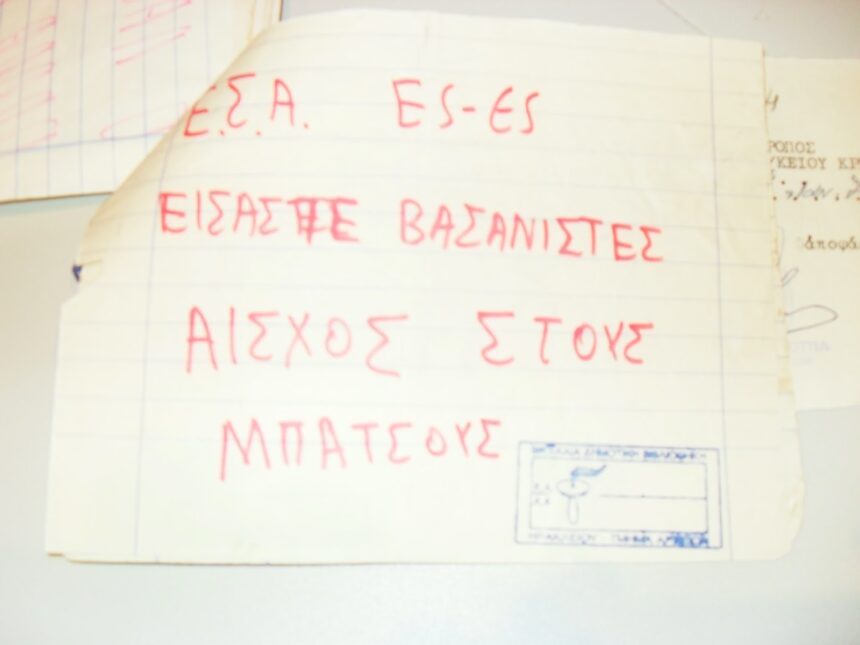 Ε.Σ.Α. ES-ES
ΕΙΣΑΣΤΕ ΒΑΣΑΝΙΣΤΕΣ
ΑΙΣΧΟΣ ΣΤΟΥΣ
ΜΠΑΤΣΟΥΣ
ΡΟΠΟΣ
ΥΚΕΙΟΥ ΚΡ